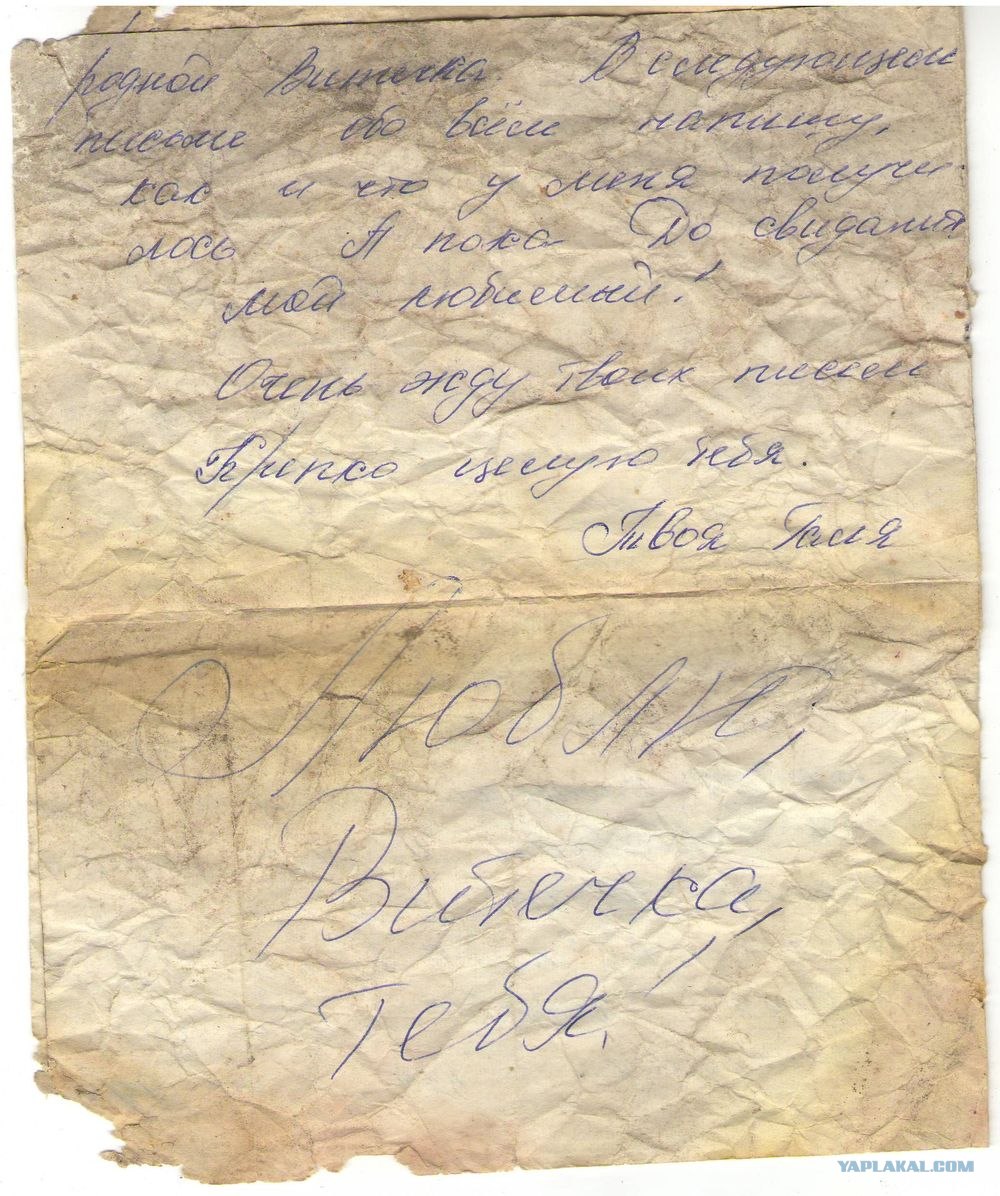 родной Витечка. В следующем
письме обо всём напишу,
как и что у меня получи-
лось А пока До свидания
мой любимый!
Очень жду твоих писем
Крепко целую тебя.
Твоя Галя
Люблю,
Витечка,
тебя!
YAPLAKAL.COM